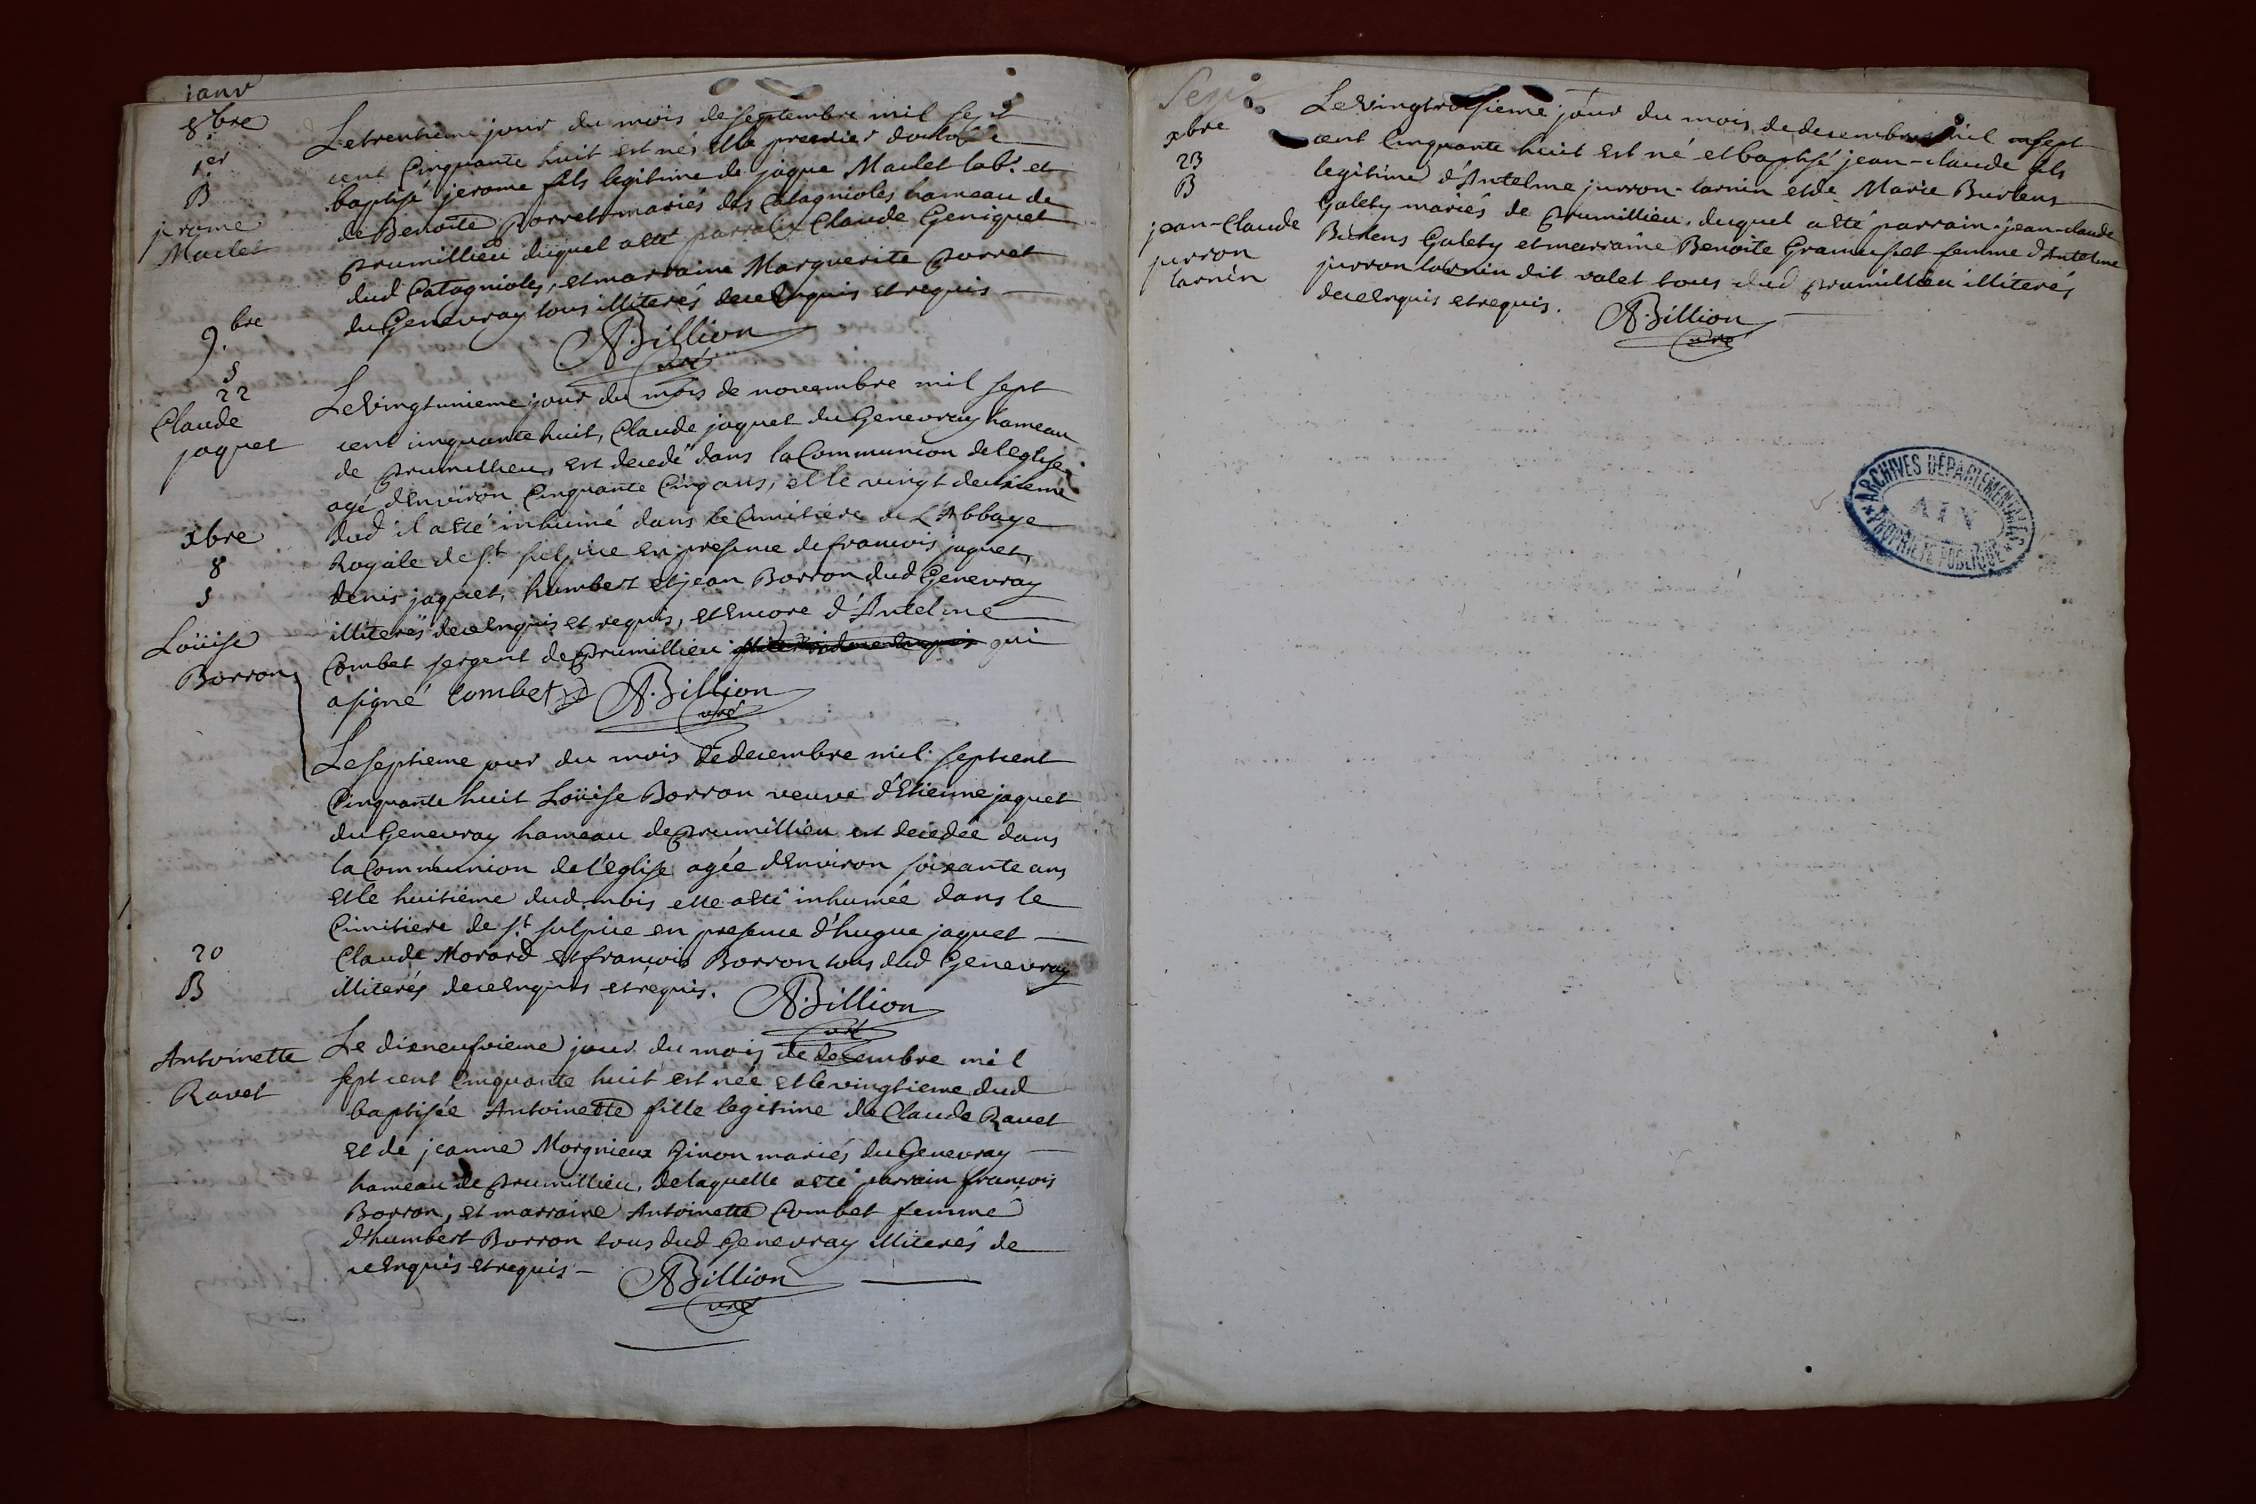 ianv
8bre
1er
B
jerome
Maclet
Le trentieme jour du mois de septembre mil sept
cent Cinquante huit est né et le premier d'octobre
baptisé jerome fils legitime de jaque Maclet labr. et
de Benoite Porret mariés des Catagnioles hameau de
Prumillieu duquel a été parrain Claude Geniquet
dud Catagnioles, et marraine Marguerite Porret
du Genevray tous illiterés de ce Enquis et requis
A. Billion
curé
9.bre
S
22
Claude
jaquet
Le Vingtunieme jour du mois de novembre mil sept
cent cinquante huit, Claude jaquet du Genevray hameau
de Prumillieu, est decedé dans la Communion de l'eglise
agé d'Environ Cinquante Cinq ans, et le vingt deuxieme
dud il a été inhumé dans le Cimitiere de L'Abbaye
Royale de St. Sulpice En presence de francois jaquet,
denis jaquet, humbert et jean Borron dud Genevray
illiterés de ce Enquis et requis, et Encore d'Antelme
Combet sergent de Prumillieu qui
a signé Combet A. Billion
curé
xbre
8
S
Loüise
Borron
Le septieme jour du mois de decembre mil sept cent
Cinquante huit Loüise Borron veuve d'Etienne jaquet
du Genevray hameau de Prumillieu est decedée dans
la Communion de l'eglise agée d'Environ soixante ans
et le huitieme dud. mois elle a été inhumée dans le
Cimitiere de St. sulpice en presence d'hugue jaquet
Claude Morard et françois Borron tous dud Genevray
illiterés de ce Enquis et requis.
A. Billion
curé
20
B
Antoinette
Ravet
Le dixneufvieme jour du mois de decembre mil
sept cent Cinquante huit est née et le vingtieme dud
baptisée Antoinette fille legitime de Claude Ravet
et de jeanne Morgnieux Ginon mariés du Genevray
hameau de Prumillieu, de laquelle a été parrain françois
Borron, et marraine Antoinette Combet femme
d'humbert Borron tous dud Genevray illiterés de
ce Enquis et requis
A Billion
curé
xbre
23
B
jean-Claude
jurron
tarnin
Le Vingtroisieme jour du mois de decembre mil sept
cent Cinquante huit est né et baptisé jean-claude fils
legitime d'Antelme jurron-tarnin et de Marie Burlens
Galety mariés de Prumillieu, duquel a été parrain jean-claude
Burlens Galety et marraine Benoite femme d'Antelme
jurron tarnin dit valet tous dud Prumillieu illiterés
de ce Enquis et requis.
A. Billion
curé
ARCHIVES DÉPARTEMENTALES
AIN
PROPRIÉTÉ PUBLIQUE